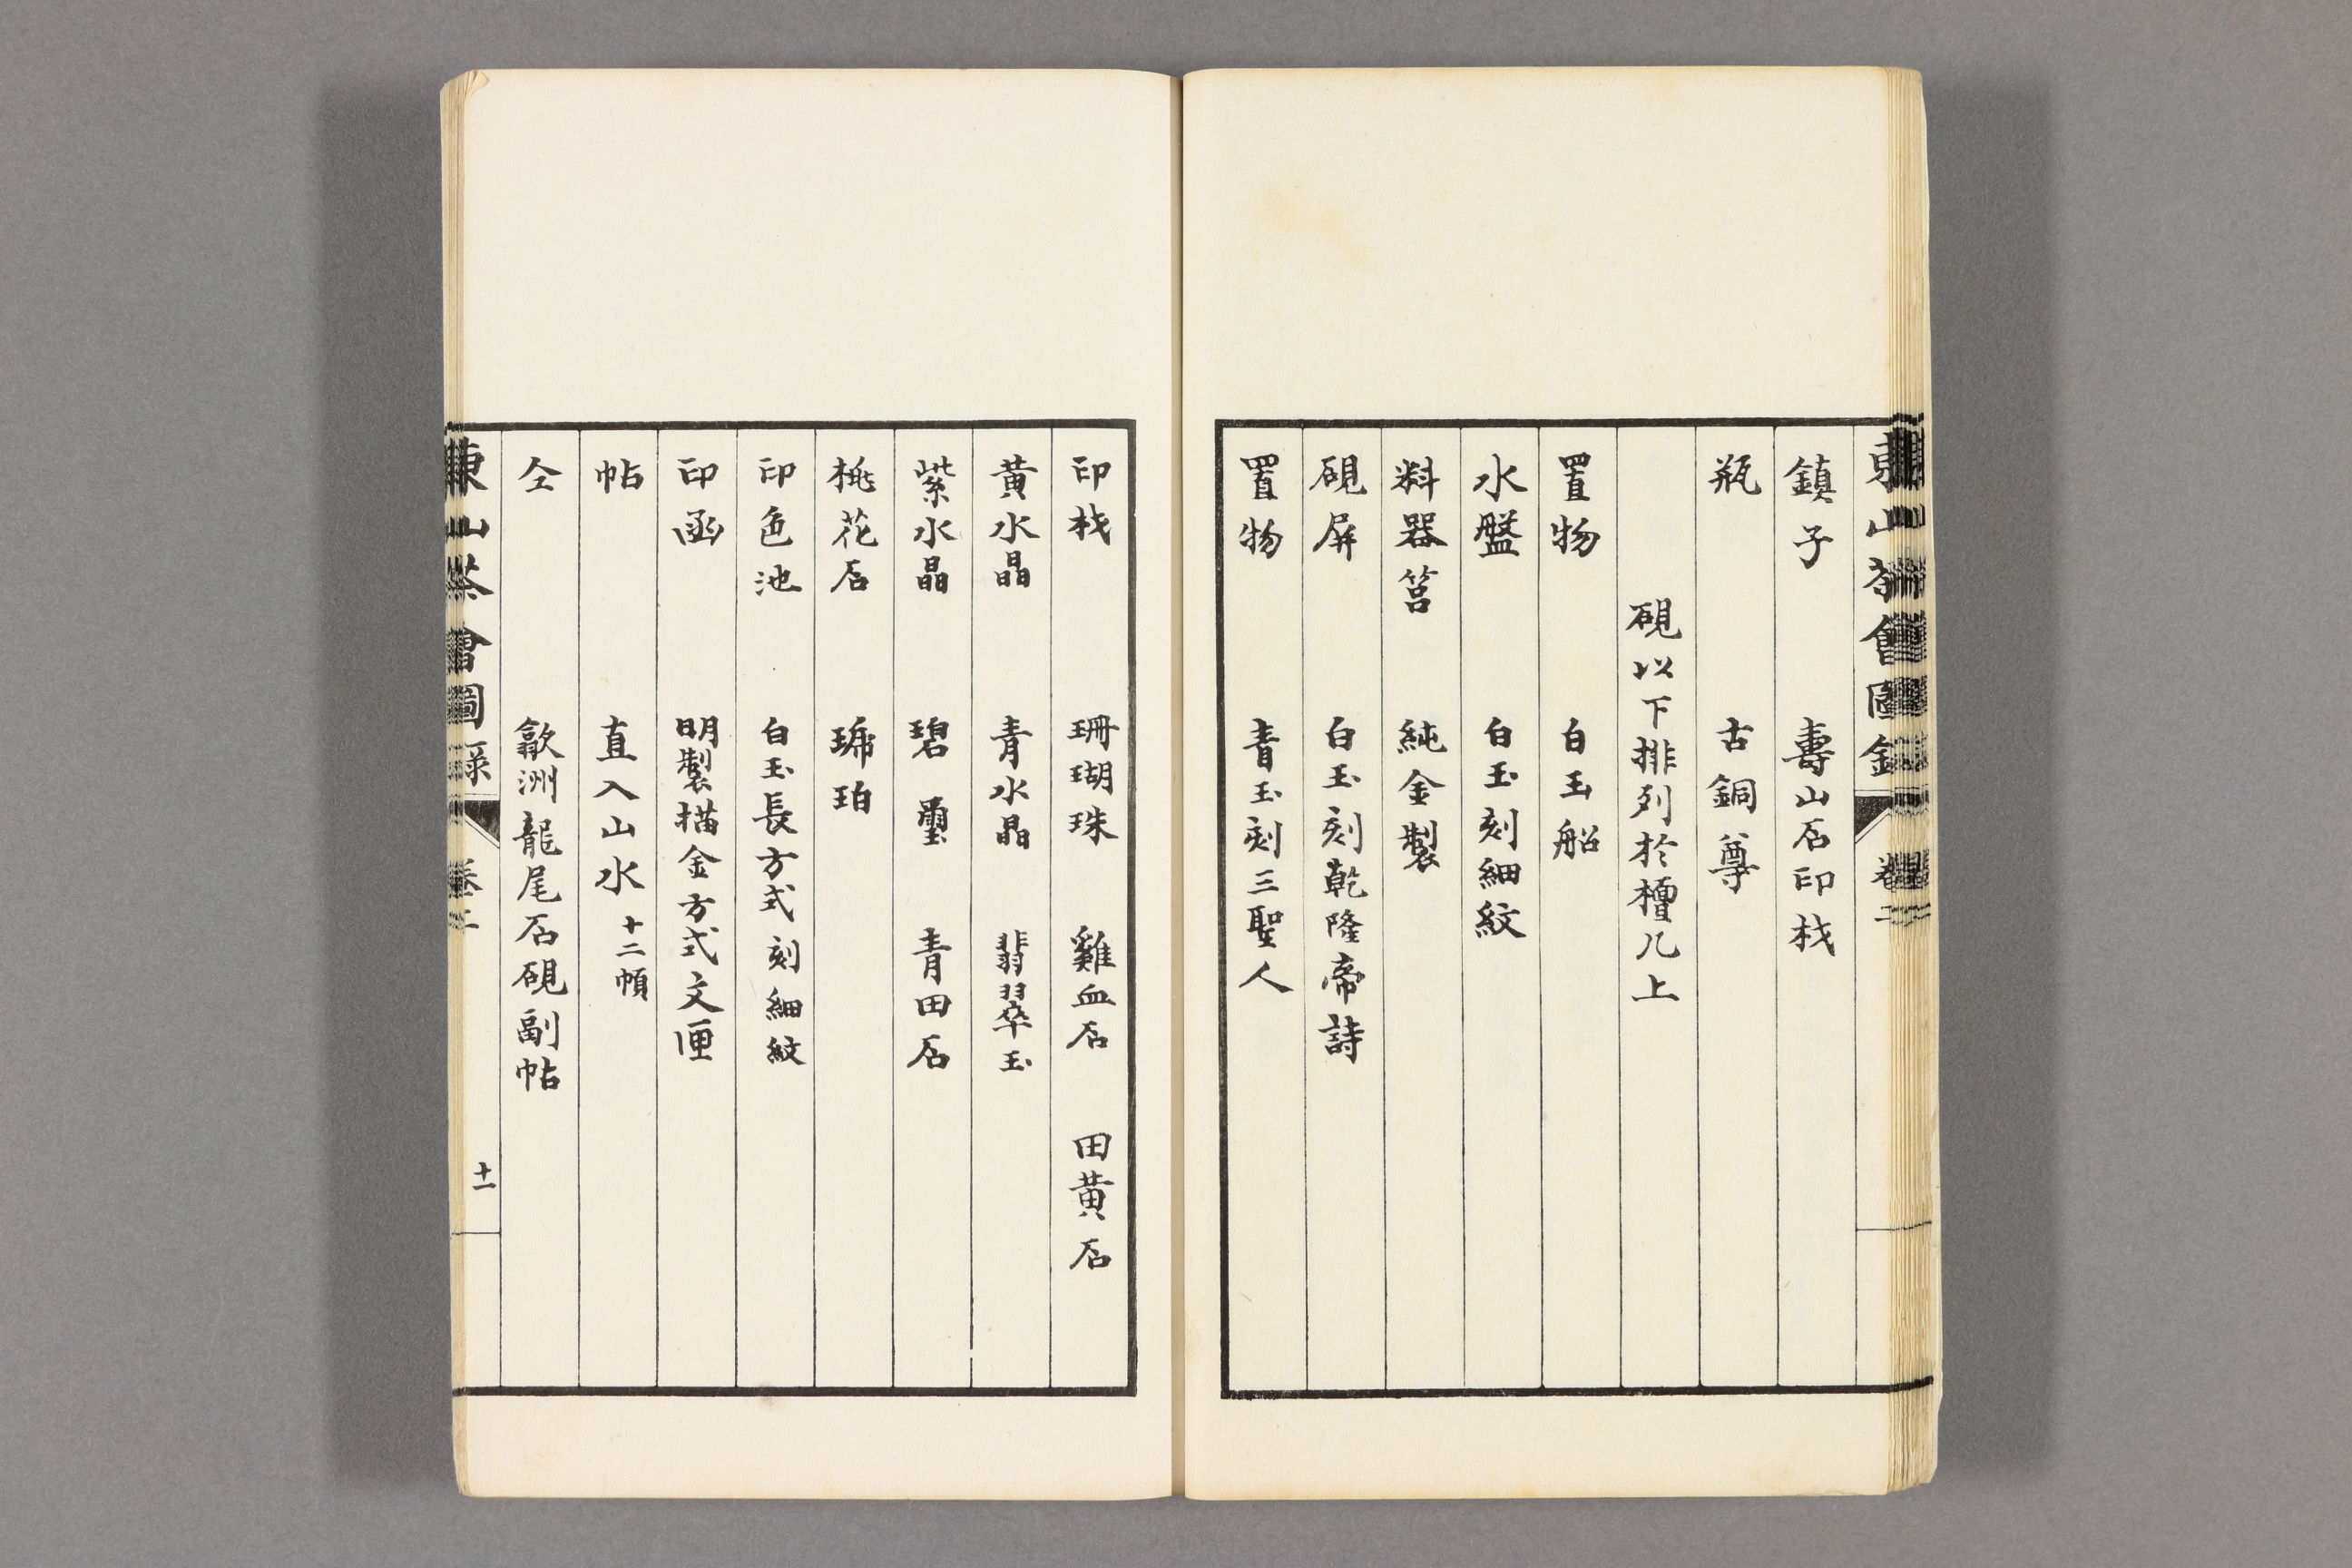 東山茶會圖錄 卷二
鎮子 壽山石印材
瓶 古銅尊
硯以下排列於檀几上
置物 白玉船
水盤 白玉刻細紋
料器筥 純金製
硯屏 白玉刻乾隆帝詩
置物 青玉刻三聖人
印材 珊瑚珠 雞血石 田黃石
黃水晶 青水晶 翡翠玉
紫水晶 碧璽 青田石
桃花石 琥珀
印色池 白玉長方式刻細紋
印函 明製描金方式文匣
帖 直入山水十二幀
仝 歙洲龍尾石硯副帖
東山茶會圖錄 卷二 十一